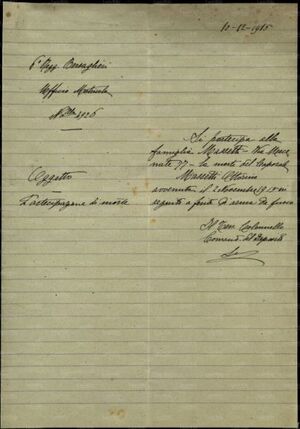 10-12-1915
6° Regg. Bersaglieri
Ufficio Matricola
N. 3926
Si partecipa alla
famiglia Massetti Via Mece
nate 77 - la morte del Caporal
Oggetto
Massetti Ottorino
avvenuta il 2 novembre 1915 in
Partecipazione di morte
seguito a ferite d'arma da fuoco
Il Ten. Colonnello
Comand. del Deposito